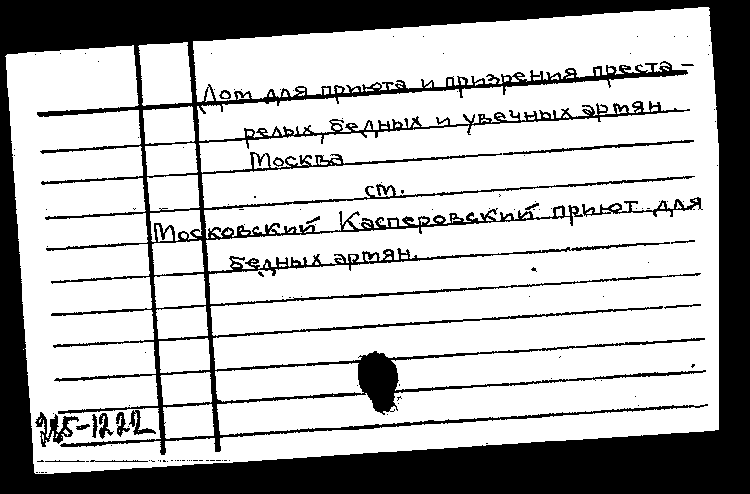 Дом для приюта и призрения преста-
релых, бедных и увечных армян.
Москва
ст.
Московский Касперовский приют для
бедных армян.
-1222